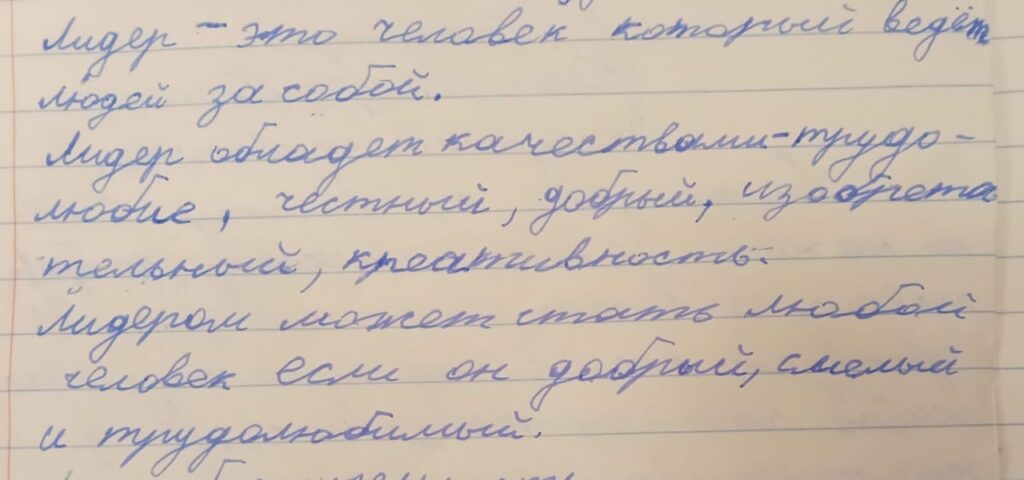 Лидер - это человек который ведёт
людей за собой.
Лидер обладет качествами-трудо-
любие, честный, добрый, изобрета
тельный, креативность.
Лидером может стать любой
человек если он добрый, смелый
и трудолюбимый.